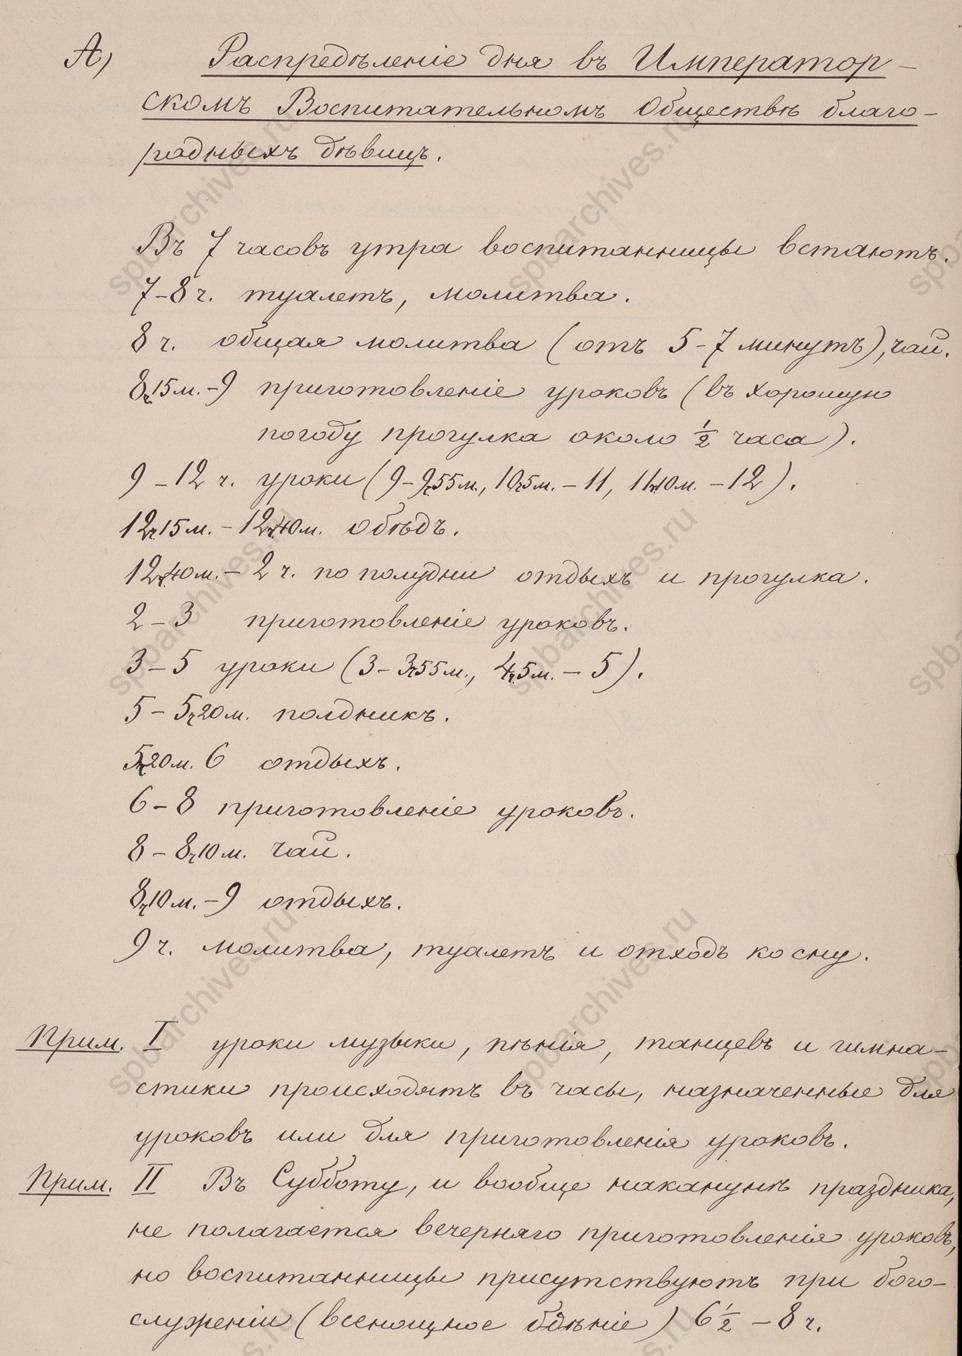 А) Распредѣленіе дня въ Император-
скомъ Воспитательномъ Обществѣ благо-
родныхъ дѣвицъ.
Въ 7 часовъ утра воспитанницы встаютъ.
7-8 ч. туалетъ, молитва.
8 ч. общая молитва (отъ 5-7 минутъ), чай.
8ч.15м.-9 приготовленіе уроковъ (въ хорошую
погоду прогулка около ½ часа).
9-12 ч. уроки (9-9ч.55м., 10ч.5м.-11, 11ч.10м.-12).
12ч.15м.-12ч.40м. обѣдъ.
12ч.40м.-2 ч. по полудни отдыхъ и прогулка.
2-3 приготовленіе уроковъ.
3-5 уроки (3-3ч.55м., 4ч.5м.-5).
5-5ч.20м. полдникъ.
5ч.20м. 6 отдыхъ.
6-8 приготовленіе уроковъ.
8-8ч.10м. чай.
8ч.10м.-9 отдыхъ.
9 ч. молитва, туалетъ и отходъ ко сну.
Прим. I уроки музыки, пѣнія, танцевъ и гимна-
стики происходятъ въ часы, назначенные для
уроковъ или для приготовленія уроковъ.
Прим. II Въ Субботу, и вообще наканунѣ праздника,
не полагается вечерняго приготовленія уроковъ,
но воспитанницы присутствуютъ при бого-
служеніи (всенощное бдѣніе) 6½-8 ч.
spbarchives.ru